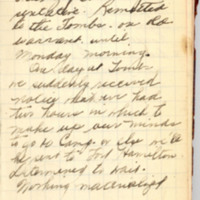 Remitted
to the Tombs. on do
warrant until
Monday morning.
One day at Tombs
we suddenly received
notice that we had
two hours in which to
make up our minds
to go to Camp or else we'd
be sent to Fort Hamilton
determined to wait.
Nothing materialized